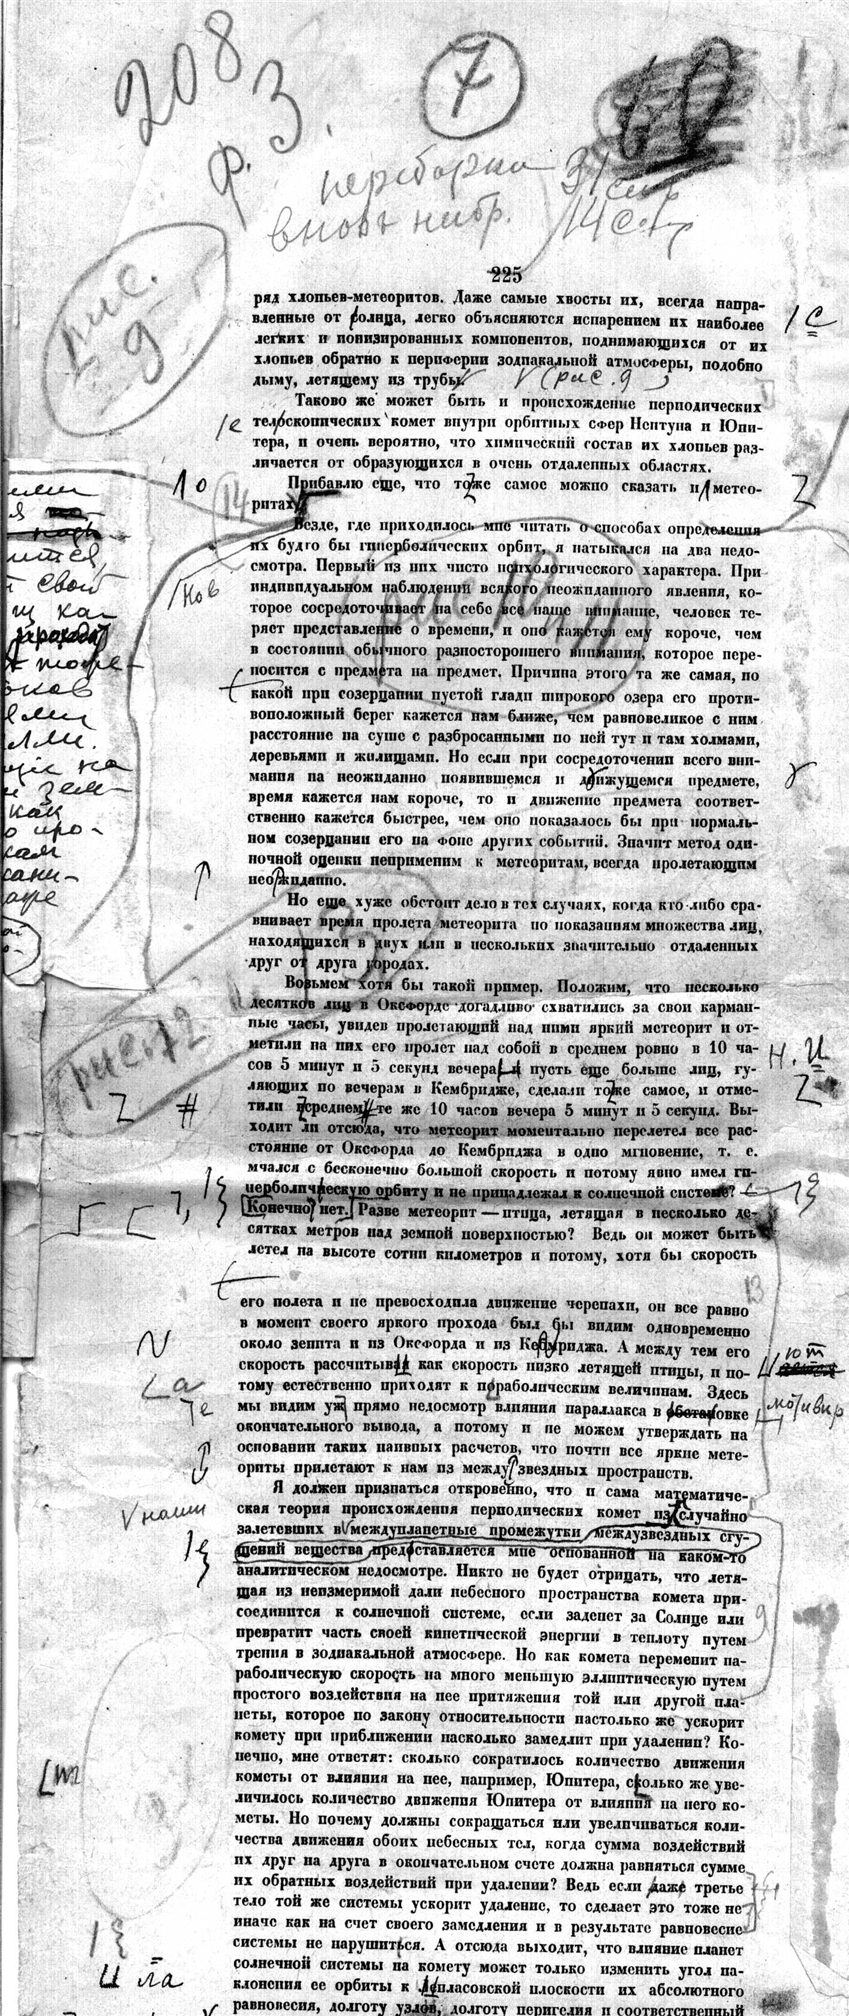 208
ф. 3.
7
переборка 31 стр
вновь набр. 14 стр
рис.
9
225
ряд хлопьев-метеоритов. Даже самые хвосты их, всегда напра-
вленные от солнца, легко объясняются испарением их наиболее
легких и ионизированных компонентов, поднимающихся от их
хлопьев обратно к периферии зодиакальной атмосферы, подобно
дыму, летящему из трубы (рис. 9)
Таково же может быть и происхождение периодических
телоскопических комет внутри орбитных сфер Нептуна и Юпи-
тера, и очень вероятно, что химический состав их хлопьев раз-
личается от образующихся в очень отдаленных областях.
Прибавлю еще, что тоже самое можно сказать и метео-
ритах.
14
Везде, где приходилось мне читать о способах определения
их будто бы гиперболических орбит, я натыкался на два недо-
смотра. Первый из них чисто психологического характера. При
индивидуальном наблюдении всякого неожиданного явления, ко-
торое сосредоточивает на себе все наше внимание, человек те-
ряет представление о времени, и оно кажется ему короче, чем
в состоянии обычного разностороннего внимания, которое пере-
носится с предмета на предмет. Причина этого та же самая, по
какой при созерцании пустой глади широкого озера его проти-
воположный берег кажется нам ближе, чем равновеликое с ним
расстояние на суше с разбросанными по ней тут и там холмами,
деревьями и жилищами. Но если при сосредоточении всего вни-
мания на неожиданно появившемся и движущемся предмете,
время кажется нам короче, то и движение предмета соответ-
ственно кажется быстрее, чем оно показалось бы при нормаль-
ном созерцании его на фоне других событий. Значит метод оди-
ночной оценки неприменим к метеоритам, всегда пролетающим
неожиданно.
Но еще хуже обстоит дело в тех случаях, когда кто-либо сра-
внивает время пролета метеорита по показаниям множества лиц,
находящихся в двух или в нескольких значительно отдаленных
друг от друга городах.
Возьмем хотя бы такой пример. Положим, что несколько
десятков лиц в Оксфорде догадливо схватились за свои карман-
ные часы, увидев пролетающий над ними яркий метеорит и от-
метили на них его пролет над собой в среднем ровно в 10 ча-
сов 5 минут и 5 секунд вечера и пусть еще больше лиц, гу-
ляющих по вечерам в Кембридже, сделали тоже самое, и отме-
тили в среднем те же 10 часов вечера 5 минут и 5 секунд. Вы-
ходит ли отсюда, что метеорит моментально перелетел все рас-
стояние от Оксфорда до Кембриджа в одно мгновение, т. е.
мчался с бесконечно большой скорость и потому явно имел ги-
перболическую орбиту и не принадлежал к солнечной системе?
Конечно нет. Разве метеорит — птица, летящая в несколько де-
сятках метров над земной поверхностью? Ведь он может быть
летел на высоте сотни километров и потому, хотя бы скорость
13
его полета и не превосходила движение черепахи, он все равно
в момент своего яркого прохода был бы видим одновременно
около зенита и из Оксфорда и из Кебмриджа. А между тем его
скорость рассчитывая как скорость низко летящей птицы, и по-
тому естественно приходят к параболическим величинам. Здесь
мы видим уж прямо недосмотр влияния параллакса в обстановке
окончательного вывода, а потому и не можем утверждать на
основании таких наивных расчетов, что почти все яркие мете-
ориты прилетают к нам из между звездных пространств.
Я должен признаться откровенно, что и сама математиче-
ская теория происхождения периодических комет из случайно
залетевших в междупланетные промежутки междузвездных сгу-
щений вещества предоставляется мне основанной на каком-то
аналитическом недосмотре. Никто не будет отрицать, что летя-
щая из неизмеримой дали небесного пространства комета при-
соединится к солнечной системе, если заденет за Солнце или
превратит часть своей кинетической энергии в теплоту путем
трения в зодиакальной атмосфере. Но как комета переменит па-
раболическую скорость на много меньшую эллиптическую путем
простого воздействия на нее притяжения той или другой пла-
неты, которое по закону относительности настолько же ускорит
комету при приближении насколько замедлит при удалении? Ко-
нечно, мне ответят: сколько сократилось количество движения
кометы от влияния на нее, например, Юпитера, сколько же уве-
личилось количество движения Юпитера от влияния на него ко-
меты. Но почему должны сокращаться или увеличиваться коли-
чества движения обоих небесных тел, когда сумма воздействий
их друг на друга в окончательном счете должна равняться сумме
их обратных воздействий при удалении? Ведь если даже третье
тело той же системы ускорит удаление, то сделает это тоже не
иначе как на счет своего замедления и в результате равновесие
системы не нарушится. А отсюда выходит, что влияние планет
солнечной системы на комету может только изменить угол на-
клонения ее орбиты к Лапласовской плоскости их абсолютного
равновесия, долготу узлов, долготу перигелия и соответственный